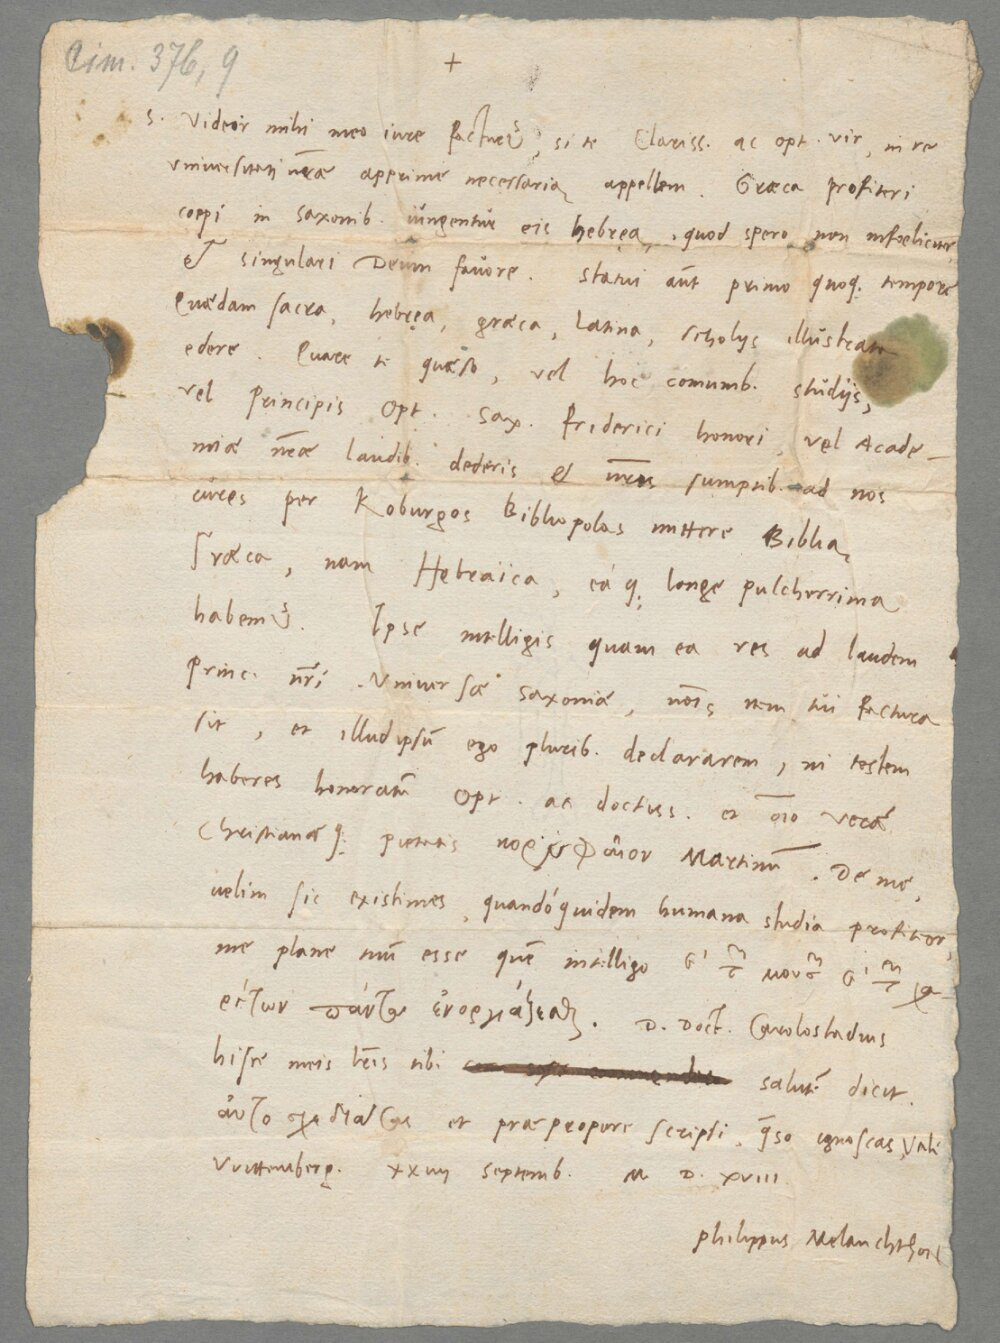 Cim. 376, 9
+
S. Videor mihi meo iure facturus, si te Clariss. ac opt. vir, in re
vniuersitati nr̃æ apprime necessaria, appellem. Græca profiteri
coepi in Saxonib. iungentur eis hebręa, quod spero non infoeliciter,
& singulari Deum fauore. Statui aũt primo quoq; tempore
Quædam sacra, hebręa, græca, latina, scholijs illustrata
edere. Quare te quæso, vel hoc comunib. studijs,
vel Principis Opt. Sax. Friderici honori, vel Acade-
miæ nr̃æ laudib. dederis & nr̃is sumptib. ad nos
cures per Koburgos Bibliopolas mittere Biblia
Græca, nam Hębraica, eáq; longe pulcherrima
habemus. Ipse intelligis quam ea res ad laudem
Princ. nr̃i. Vniuersæ Saxoniæ, item tui factura
sit, et illudipsũ ego plurib. declararem, ni testem
haberes honoratũ Opt. ac doctiss. et oĩo veræ
Christianæq; pietatis Martinũ. De me,
uelim sic existimes, quandóquidem humana studia profiteor,
me plane eum esse quẽ intelligo
D. Doct. Carolostadius
hisce meis lr̃is tibi salutẽ dicit.
et præpropere scripsi, q̃so ignoscas, Vale
Vuittenberg. xxiiii Septemb. M D. XVIII.
Philippus Melanchthon